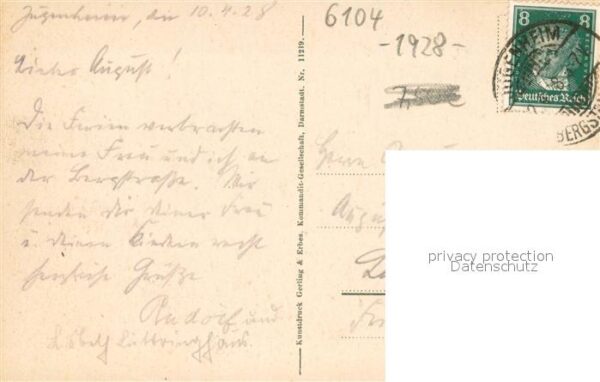 Jugenheim, den 10.4.28
Lieber August!
Die Ferien verbrachten
meine Frau und ich an
der Bergstraße. Wir
senden dir deiner Frau
u. deinen Kindern recht
herzliche Grüße
Rudolf und
Kunstdruck Gerling & Erbes, Kommandit-Gesellschaft, Darmstadt. Nr. 11219.
6104
-1928-
8 8
Deutsches Reich
JUGENHEIM
BERGST
Herrn
Augu
privacy protection
Datenschutz